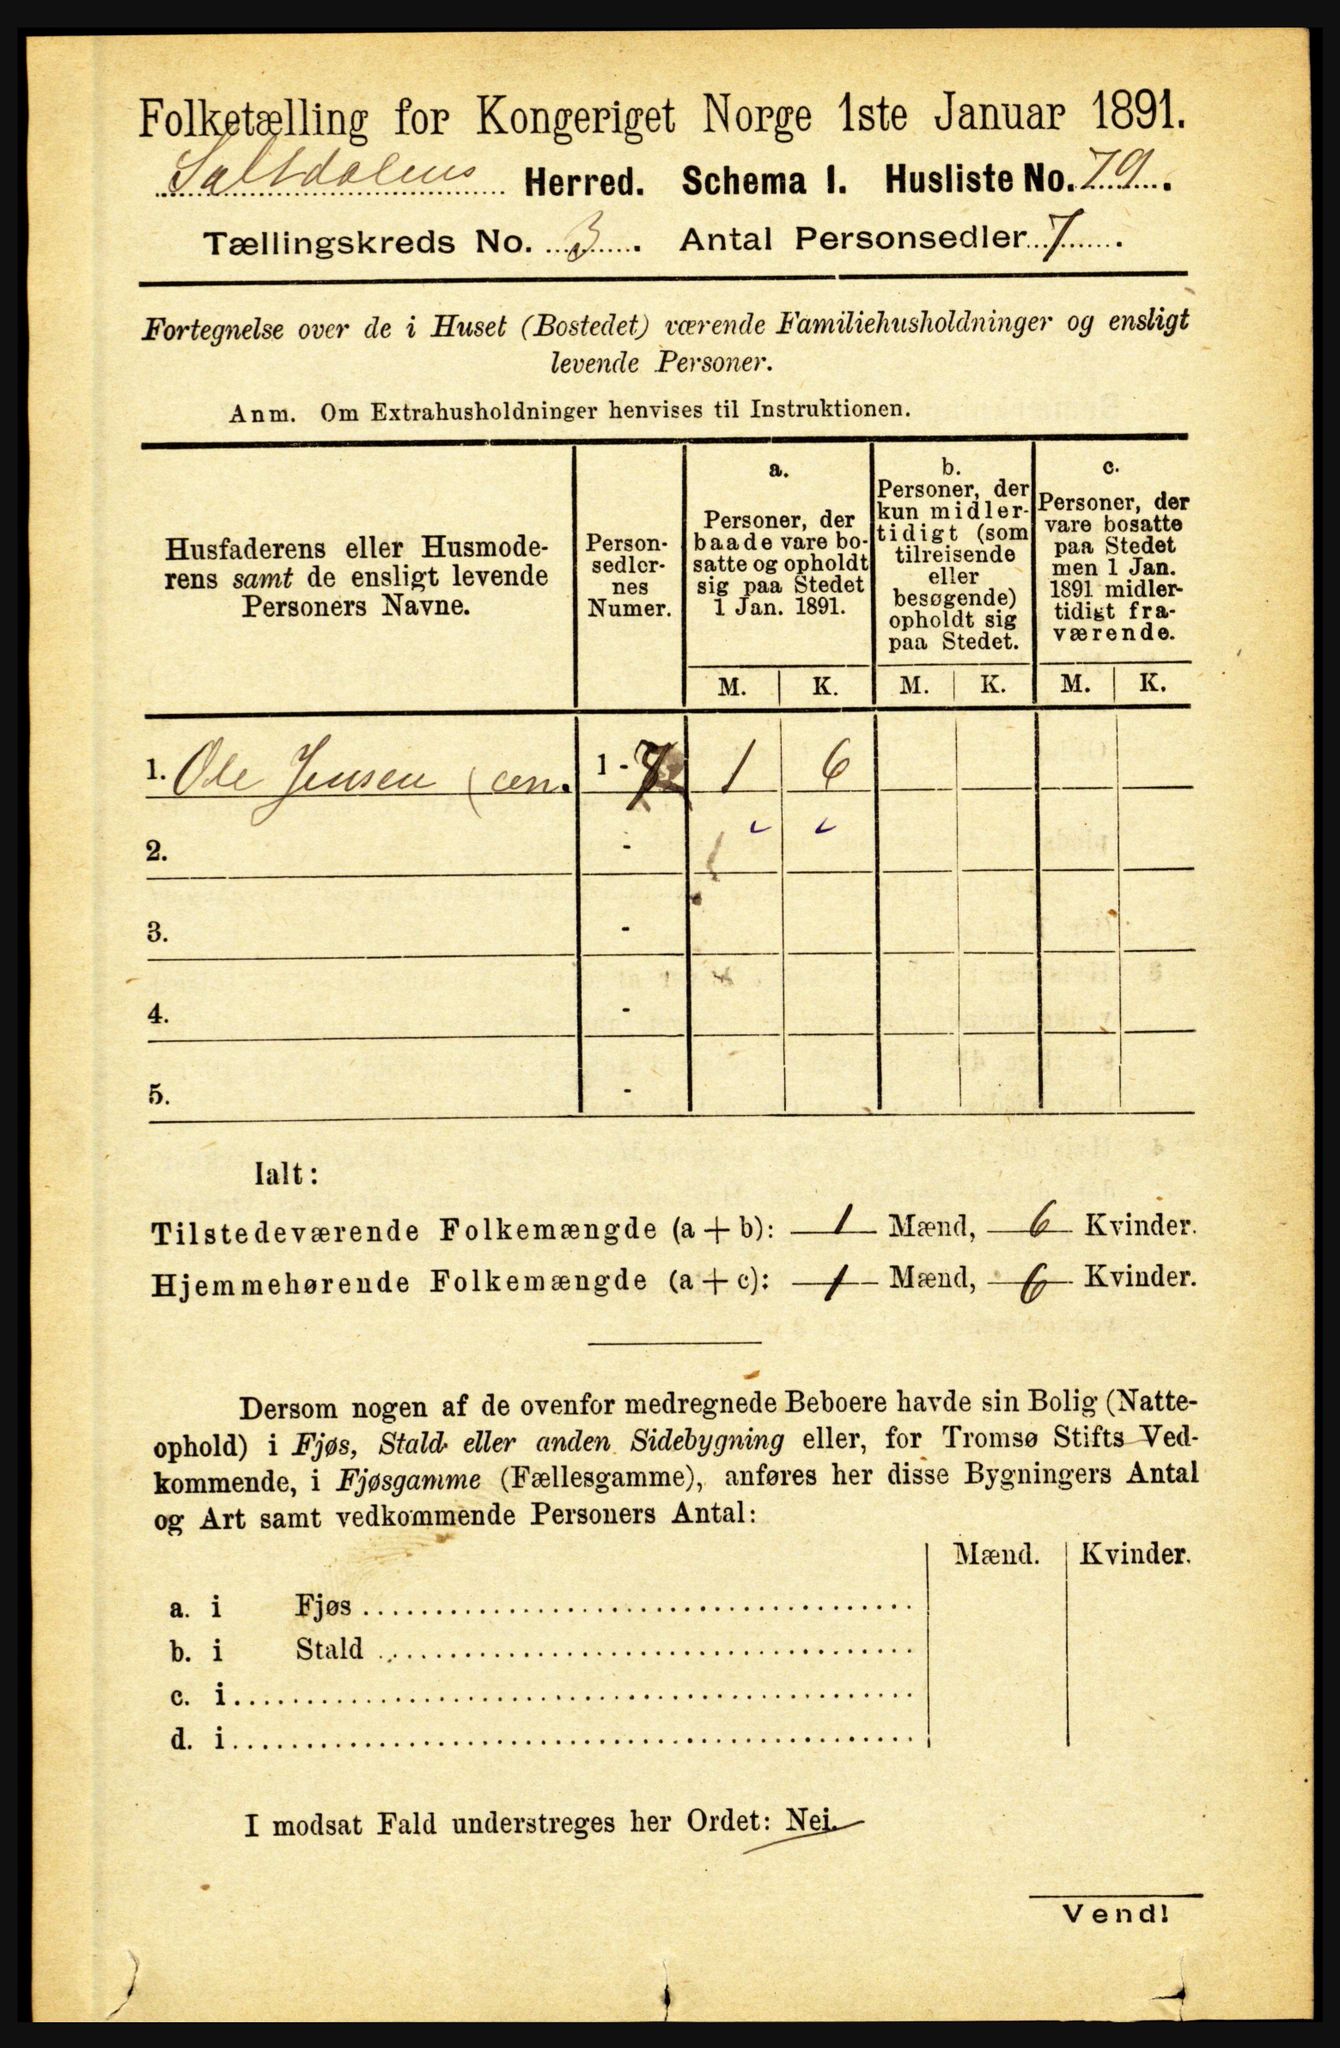 Folketælling for Kongeriget Norge 1ste Januar 1891.
Saltdalens Herred. Schema I. Husliste No. 79.
Tællingskreds No. 3. Antal Personsedler 7.
Fortegnelse over de i Huset (Bostedet) værende Familiehusholdninger og ensligt
levende Personer.
Anm. Om Extrahusholdninger henvises til Instruktionen.
Husfaderens eller Husmode-
rens samt de ensligt levende
Personers Navne.
Person-
sedler-
nes
Numer.
a.
Personer, der
baade vare bo-
satte og opholdt
sig paa Stedet
1 Jan. 1891.
b.
Personer, der
kun midler-
tidigt (som
tilreisende
eller
besøgende)
opholdt sig
paa Stedet.
c.
Personer, der
vare bosatte
paa Stedet
men 1 Jan.
1891 midler-
tidigt fra-
værende.
M. K. M. K. M. K.
1. Ole Jensen 1 - 7 1 6
2. -
3. -
4. -
5. -
Ialt:
Tilstedeværende Folkemængde (a + b): 1 Mænd, 6 Kvinder.
Hjemmehørende Folkemængde (a + c): 1 Mænd, 6 Kvinder.
Dersom nogen af de ovenfor medregnede Beboere havde sin Bolig (Natte-
ophold) i Fjøs, Stald eller anden Sidebygning eller, for Tromsø Stifts Ved-
kommende, i Fjøsgamme (Fællesgamme), anføres her disse Bygningers Antal
og Art samt vedkommende Personers Antal:
Mænd. Kvinder.
a. i Fjøs
b. i Stald
c. i
d. i
I modsat Fald understreges her Ordet: Nei.
Vend!